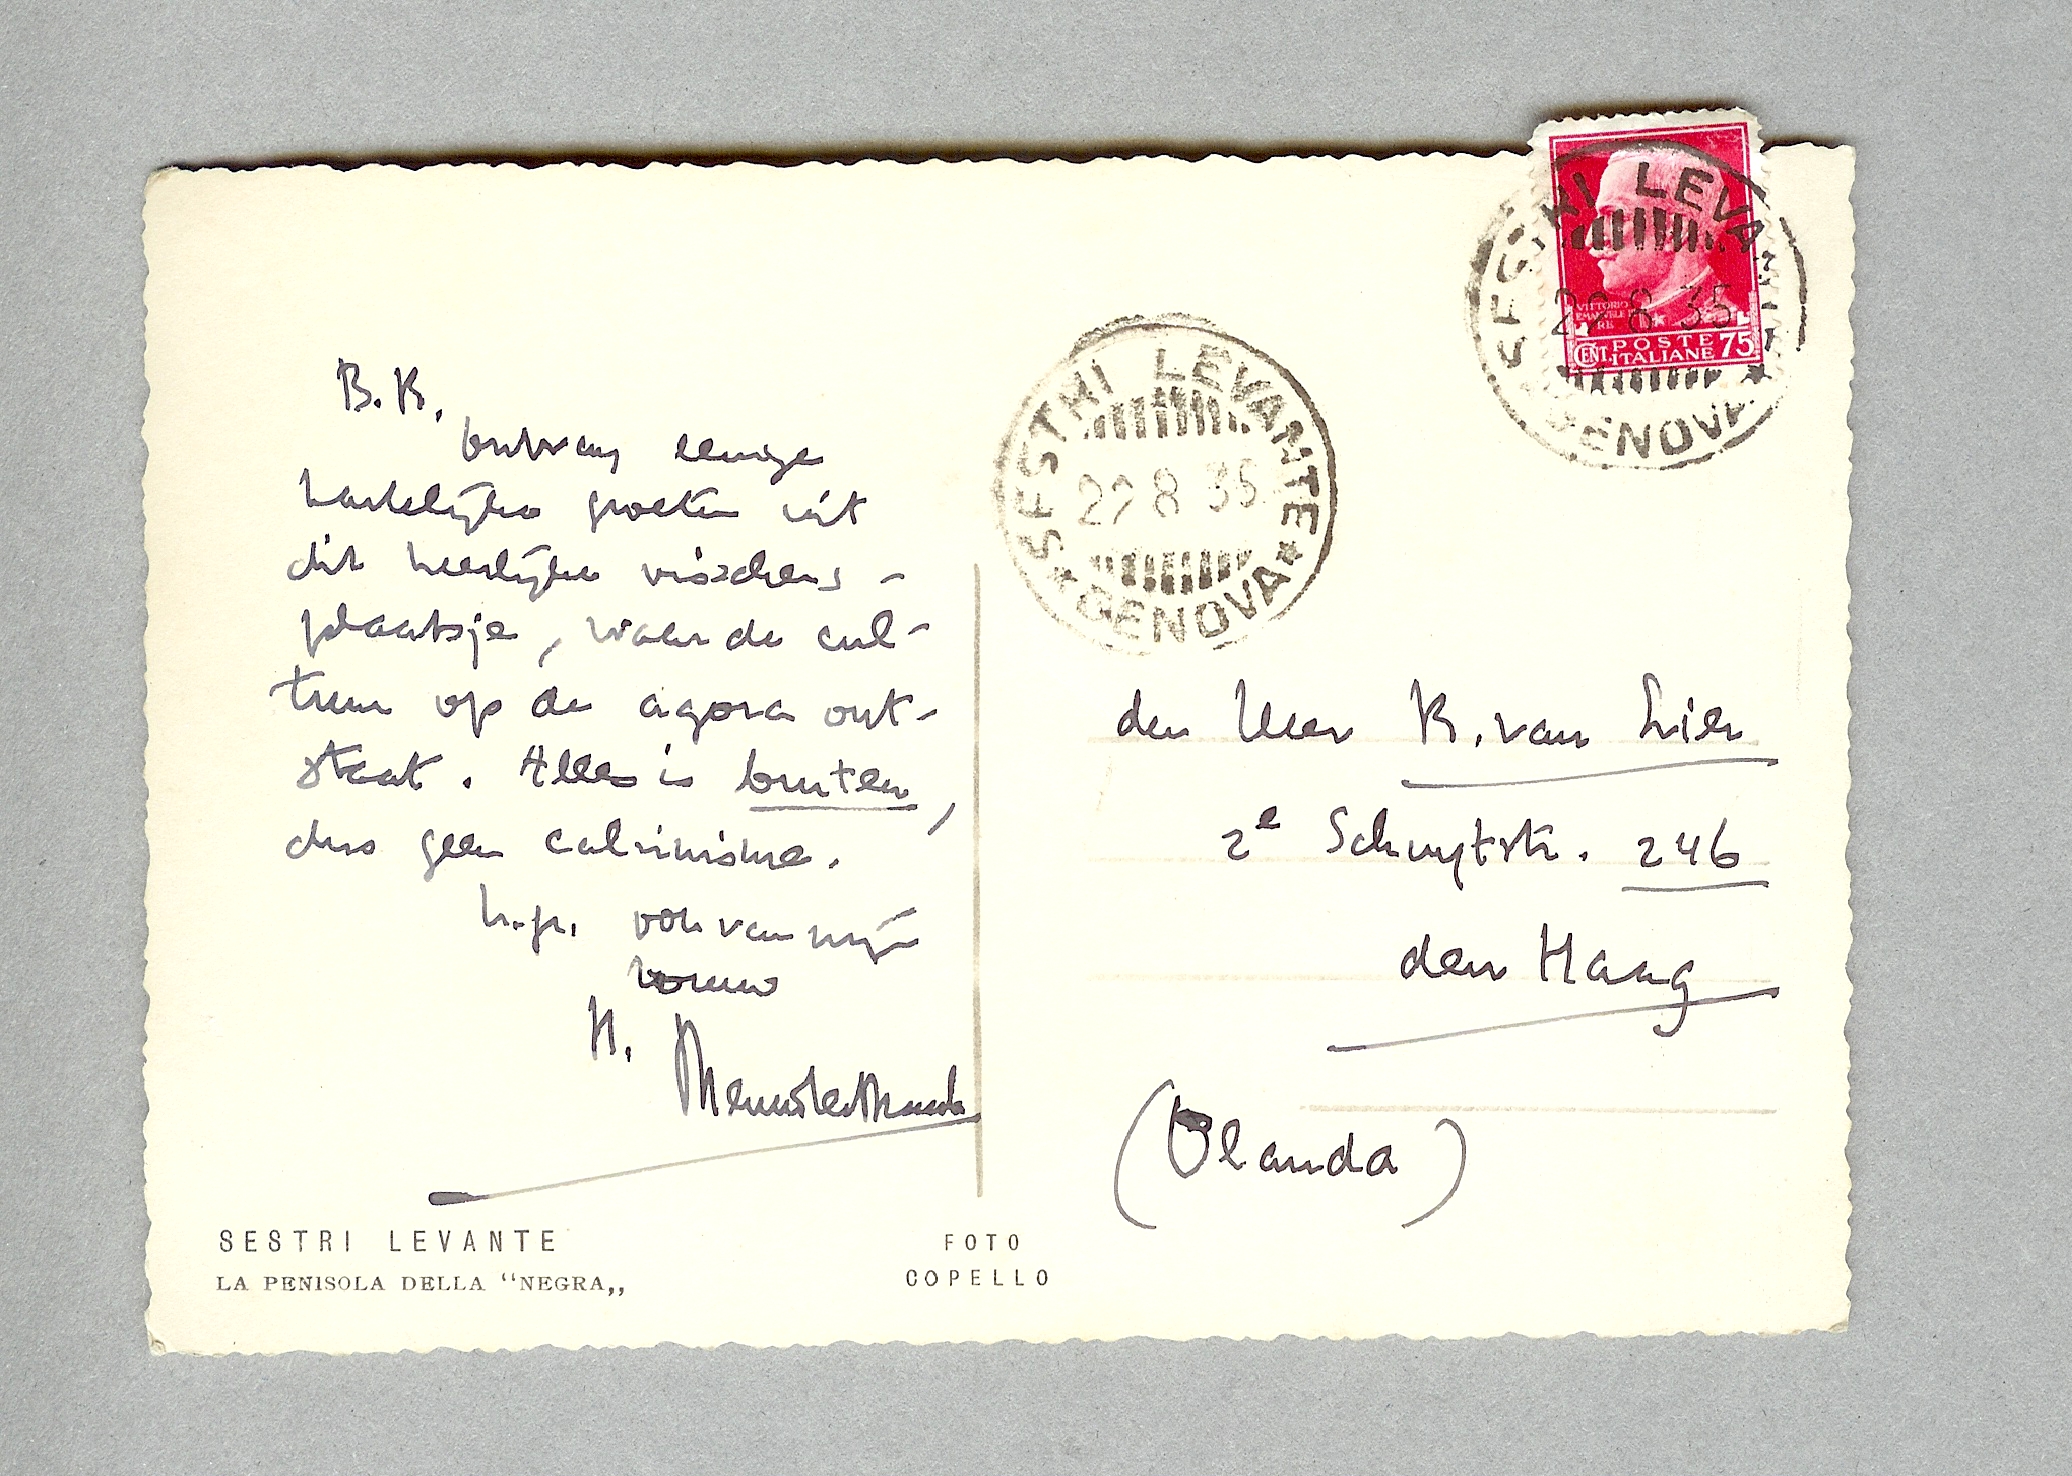 B.K.
ontvang eenige
hartelijke groeten uit
dit heerlijke visschers-
plaatsje, waar de cul-
tuur op de agora ont-
staat. Alles is buiten,
dus geen calvinisme.
h.gr. ook van mijn
vrouw
H. Mennstermann
SESTRI LEVANTE
LA PENISOLA DELLA “NEGRA„
FOTO
COPELLO
SESTRI LEVANTE
22 8 35
* GENOVA *
SESTRI LEVANTE
22 8 35
* GENOVA *
VITTORIO
EMANUELE
RE
CENT. POSTE ITALIANE 75
den Heer K. van Lier
2e Schuytstr. 246
den Haag
(Olanda)